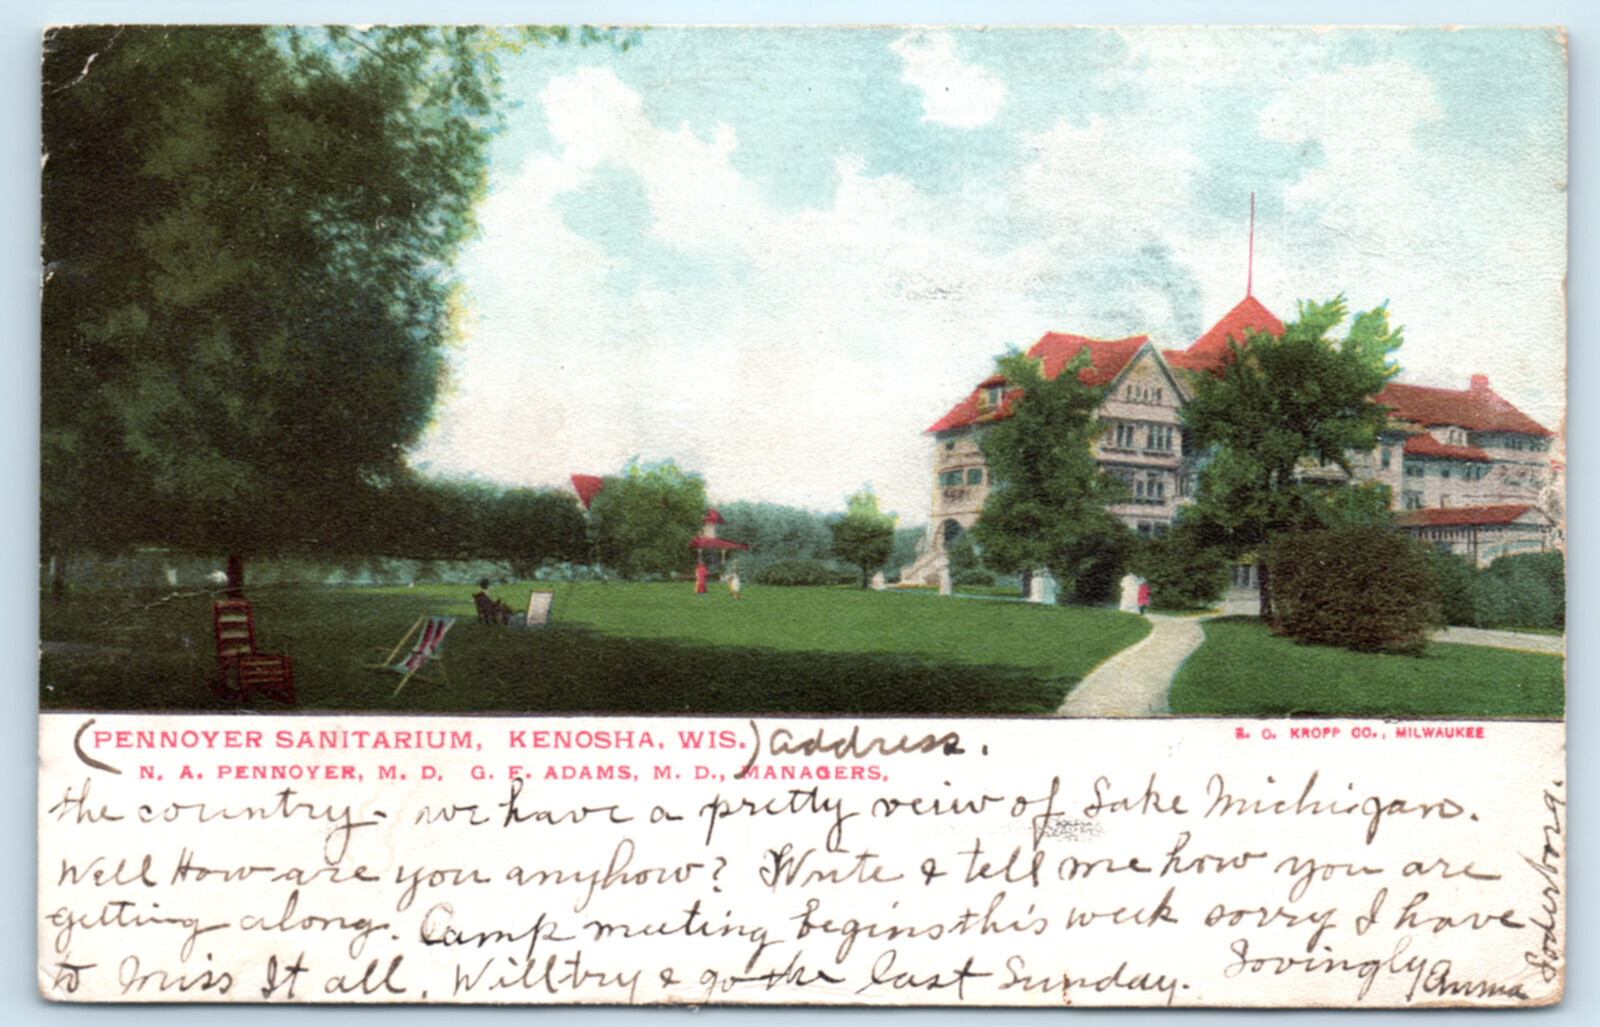 (PENNOYER SANITARIUM, KENOSHA, WIS.) address.
E. C. KROPP CO., MILWAUKEE
N. A. PENNOYER, M. D. G. F. ADAMS, M. D., MANAGERS.
the country - we have a pretty veiw of Lake Michigan.
Well How are you anyhow? Write & tell me how you are
getting along. Camp meeting begins this week sorry I have
to miss It all. Will try & go the last Sunday.
Lovingly Anna
Soderborg.